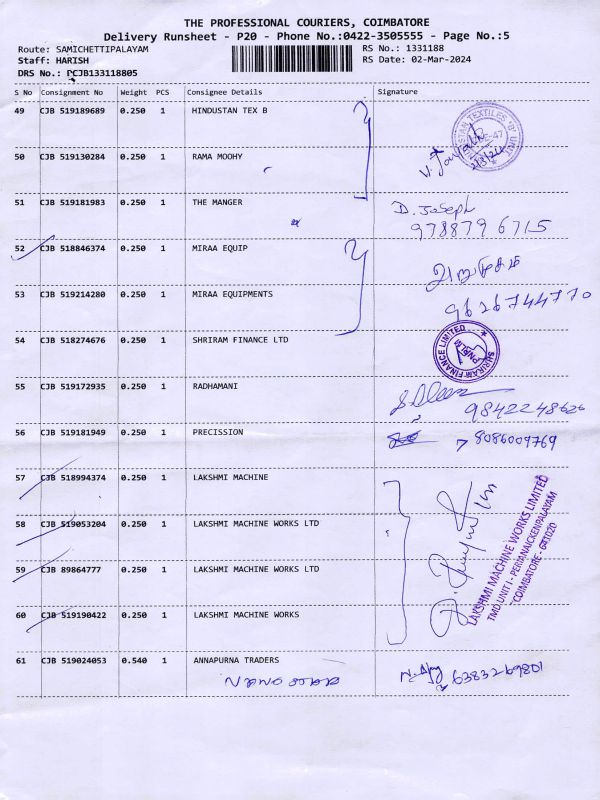 THE PROFESSIONAL COURIERS, COIMBATORE
Delivery Runsheet - P20 - Phone No.:0422-3505555 - Page No.:5
Route: SAMICHETTIPALAYAM
RS No.: 1331188
Staff: HARISH
RS Date: 02-Mar-2024
DRS No.: PCJB133118805
S No Consignment No Weight PCS Consignee Details Signature
49 CJB 519189689 0.250 1 HINDUSTAN TEX B
50 CJB 519130284 0.250 1 RAMA MOOHY
51 CJB 519181983 0.250 1 THE MANGER D. Joseph
9788796715
52 CJB 518846374 0.250 1 MIRAA EQUIP
53 CJB 519214280 0.250 1 MIRAA EQUIPMENTS 9626744770
54 CJB 518274676 0.250 1 SHRIRAM FINANCE LTD SHRIRAM FINANCE LIMITED
55 CJB 519172935 0.250 1 RADHAMANI 9842248626
56 CJB 519181949 0.250 1 PRECISSION 8086009769
57 CJB 518994374 0.250 1 LAKSHMI MACHINE
58 CJB 519053204 0.250 1 LAKSHMI MACHINE WORKS LTD
59 CJB 89864777 0.250 1 LAKSHMI MACHINE WORKS LTD
60 CJB 519190422 0.250 1 LAKSHMI MACHINE WORKS
LAKSHMI MACHINE WORKS LIMITED
TMD UNIT I - PERIANAICKENPALAYAM
COIMBATORE - 641020
61 CJB 519024053 0.540 1 ANNAPURNA TRADERS 6383269801